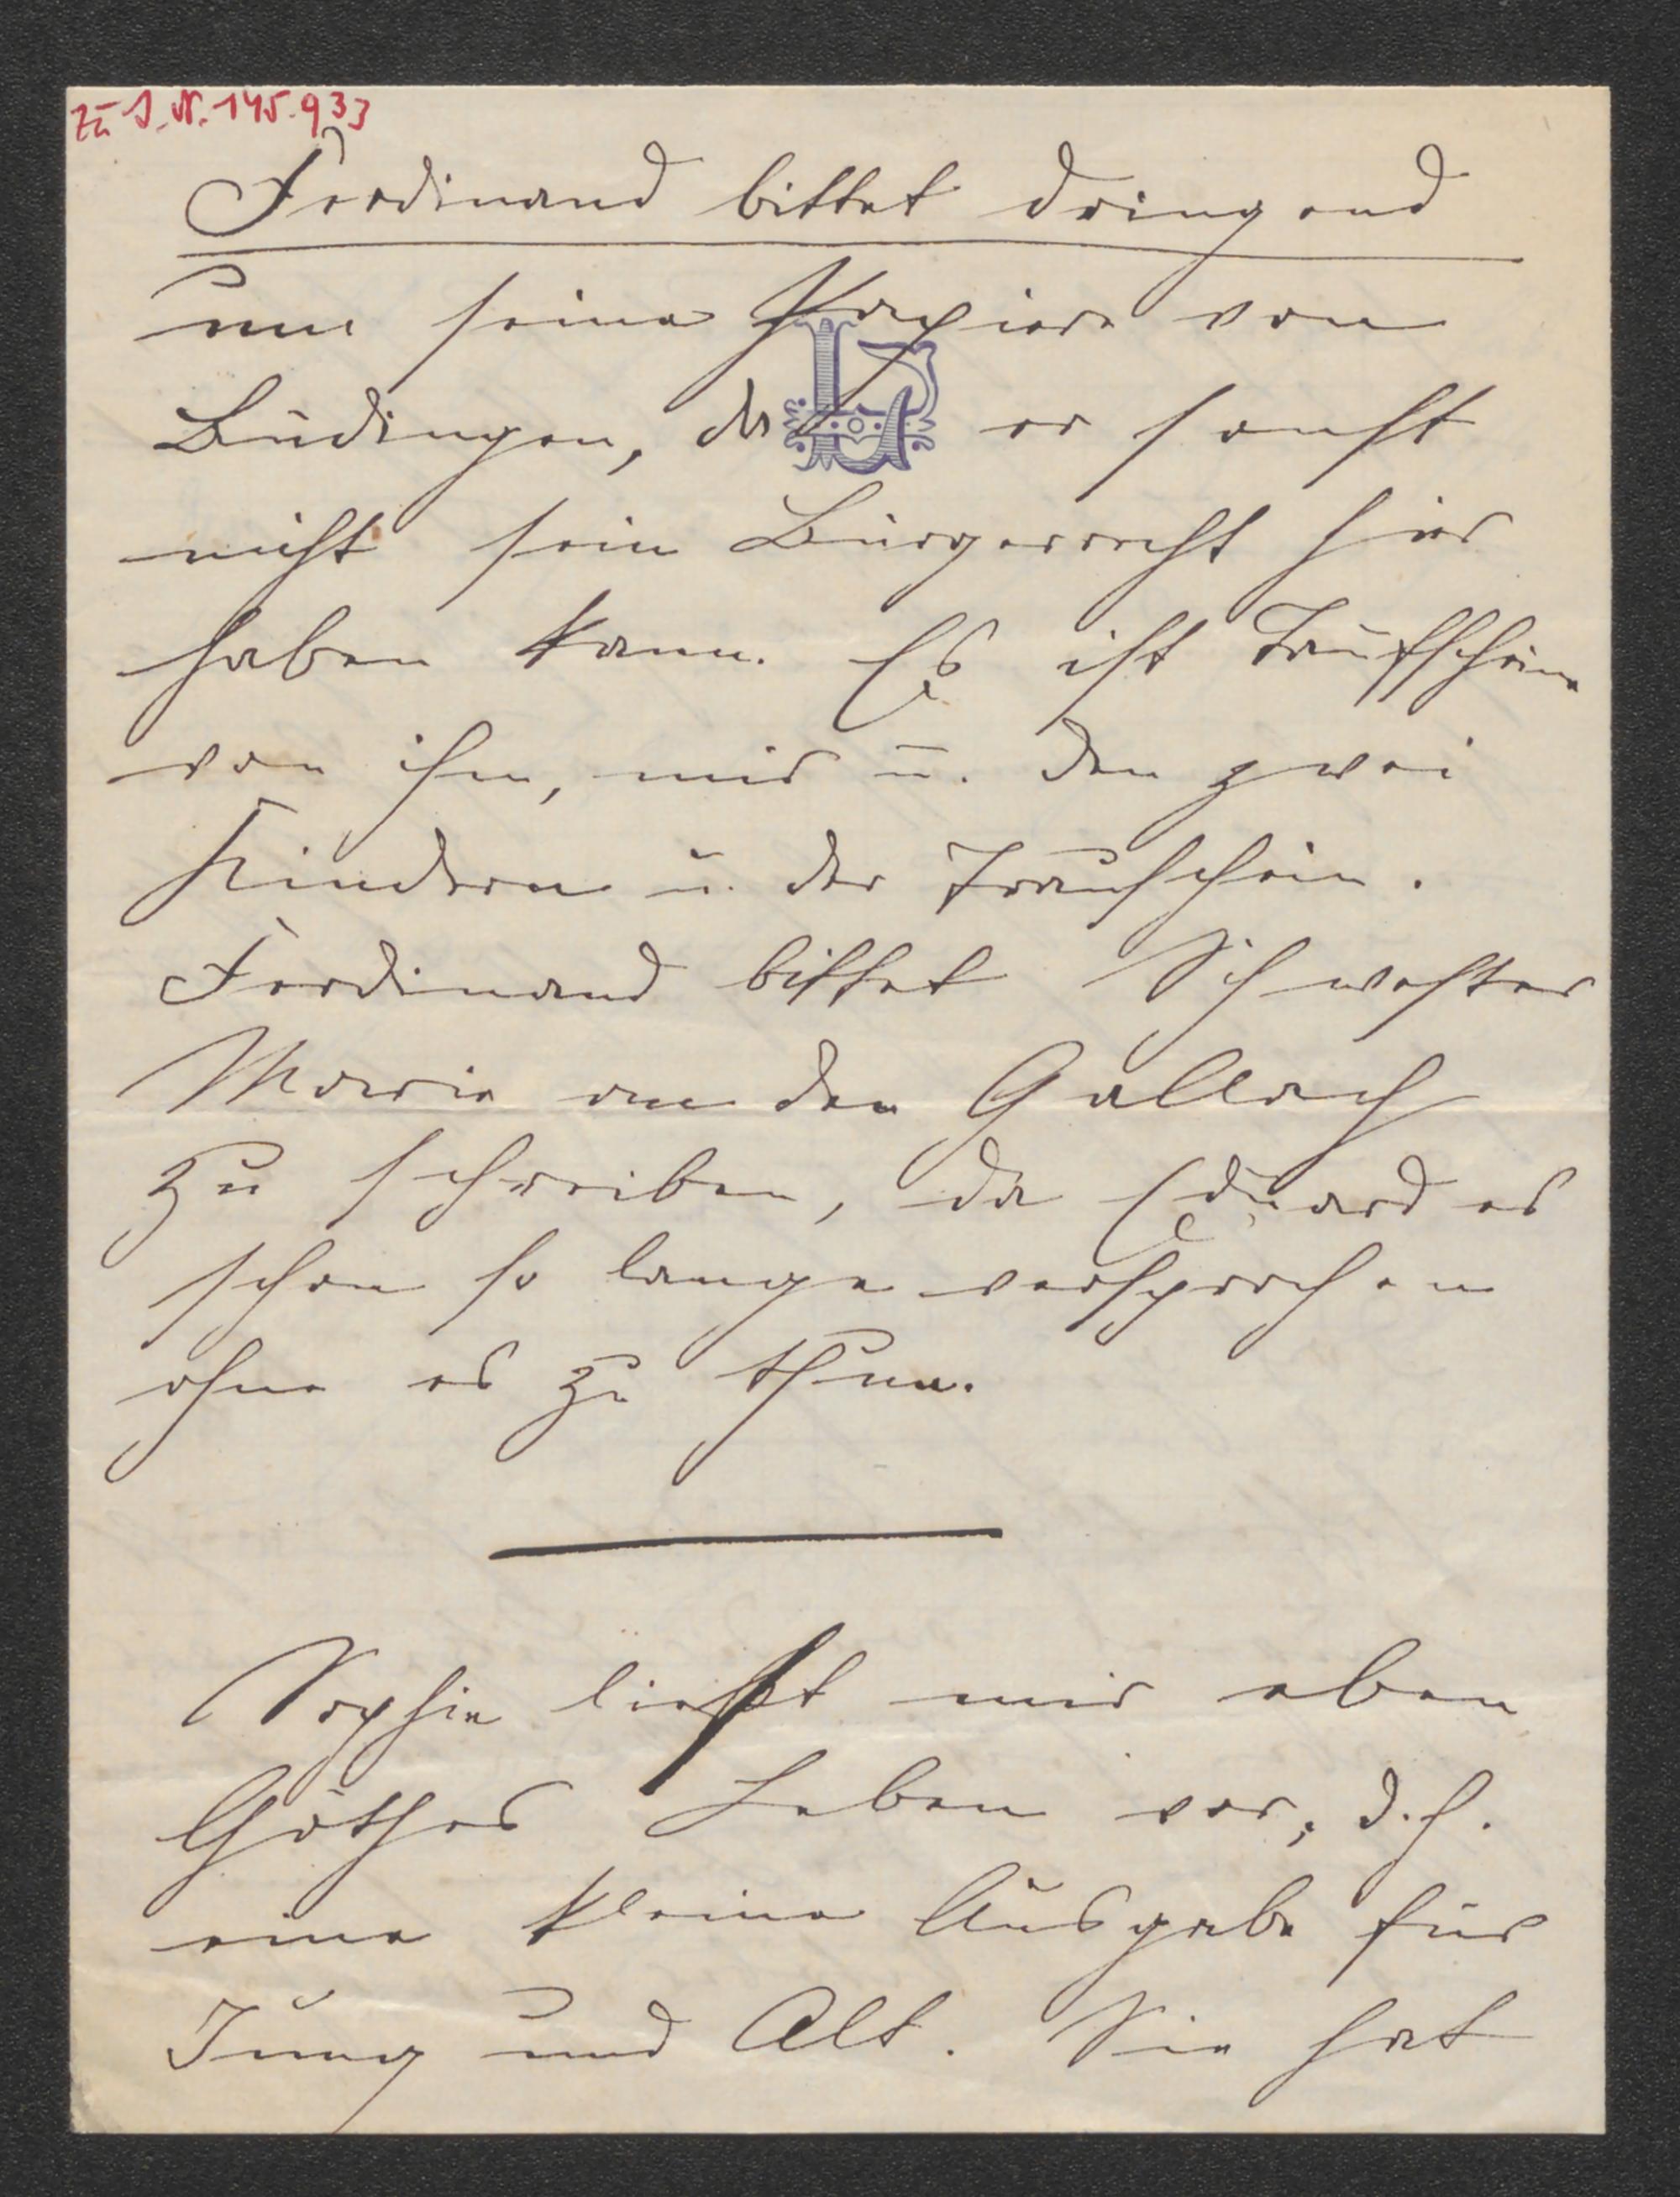 zu I.N. 145.933
Ferdinand bittet dringend
um seine Papiere von
Büdingen, da er sonst
nicht sein Bürgerrecht hier
haben kann. Es ist Taufscheine
von ihm, mir u. den zwei
Kindern u. der Trauschein.
Ferdinand bittet Schwester
Marie an den
zu schreiben, da Eduard es
schon so lange versprochen
ohne es zu thun.
Sophie liest mir eben
Göthes Leben vor, d.h.
eine kleine Ausgabe für
Jung und Alt. Sie hat